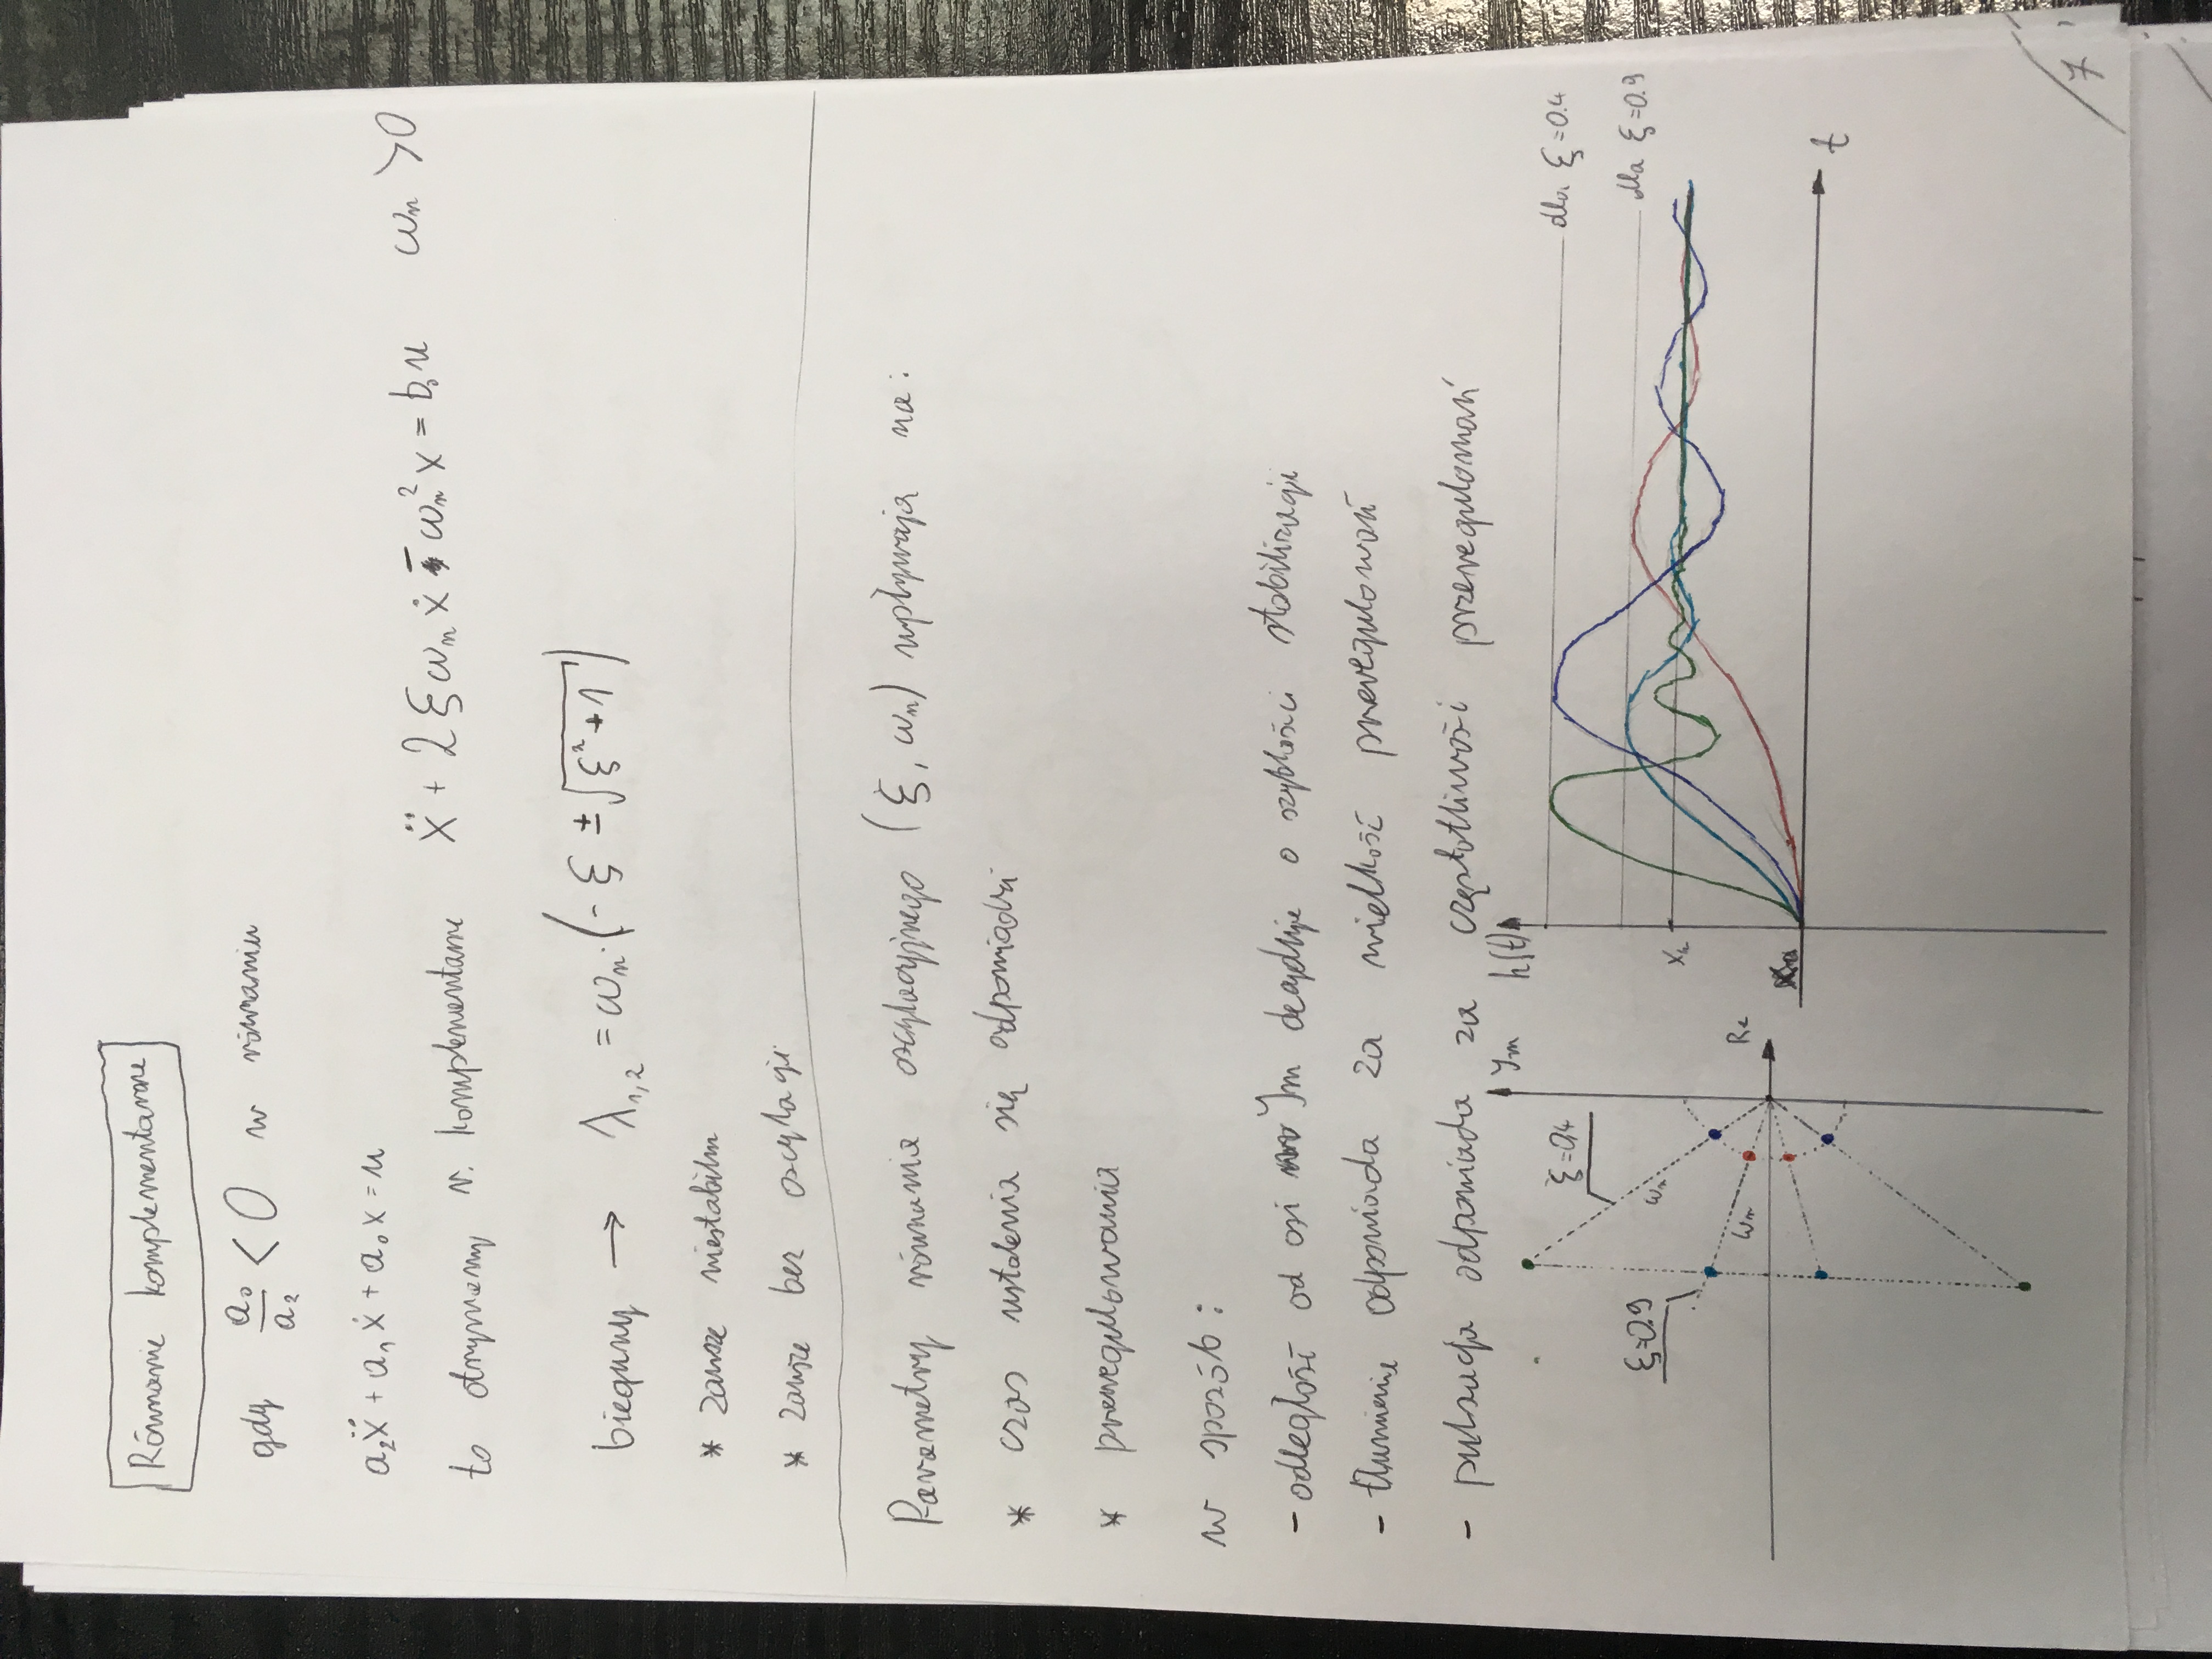 Równanie komplementarne
gdy a₀/a₂ < 0 w równaniu
a₂ẍ + a₁ẋ + a₀x = u
to otrzymamy r. komplementarne ẍ + 2ξωₙẋ - ωₙ²x = b₀u ωₙ > 0
bieguny → λ₁,₂ = ωₙ·(-ξ ± √(ξ²+1))
* zawsze niestabilny
* zawsze bez oscylacji
Parametry równania oscylacyjnego (ξ, ωₙ) wpływają na:
* czas ustalenia się odpowiedzi
* przeregulowania
w sposób:
- odległość od osi Im decyduje o szybkości stabilizacji
- tłumienie odpowiada za wielkość przeregulowań
- pulsacja odpowiada za częstotliwości przeregulowań
Im
ξ=0,4
ξ=0.9
ωₙ
ωₙ
Re
h(t)
dla ξ=0.4
dla ξ=0.9
t
7